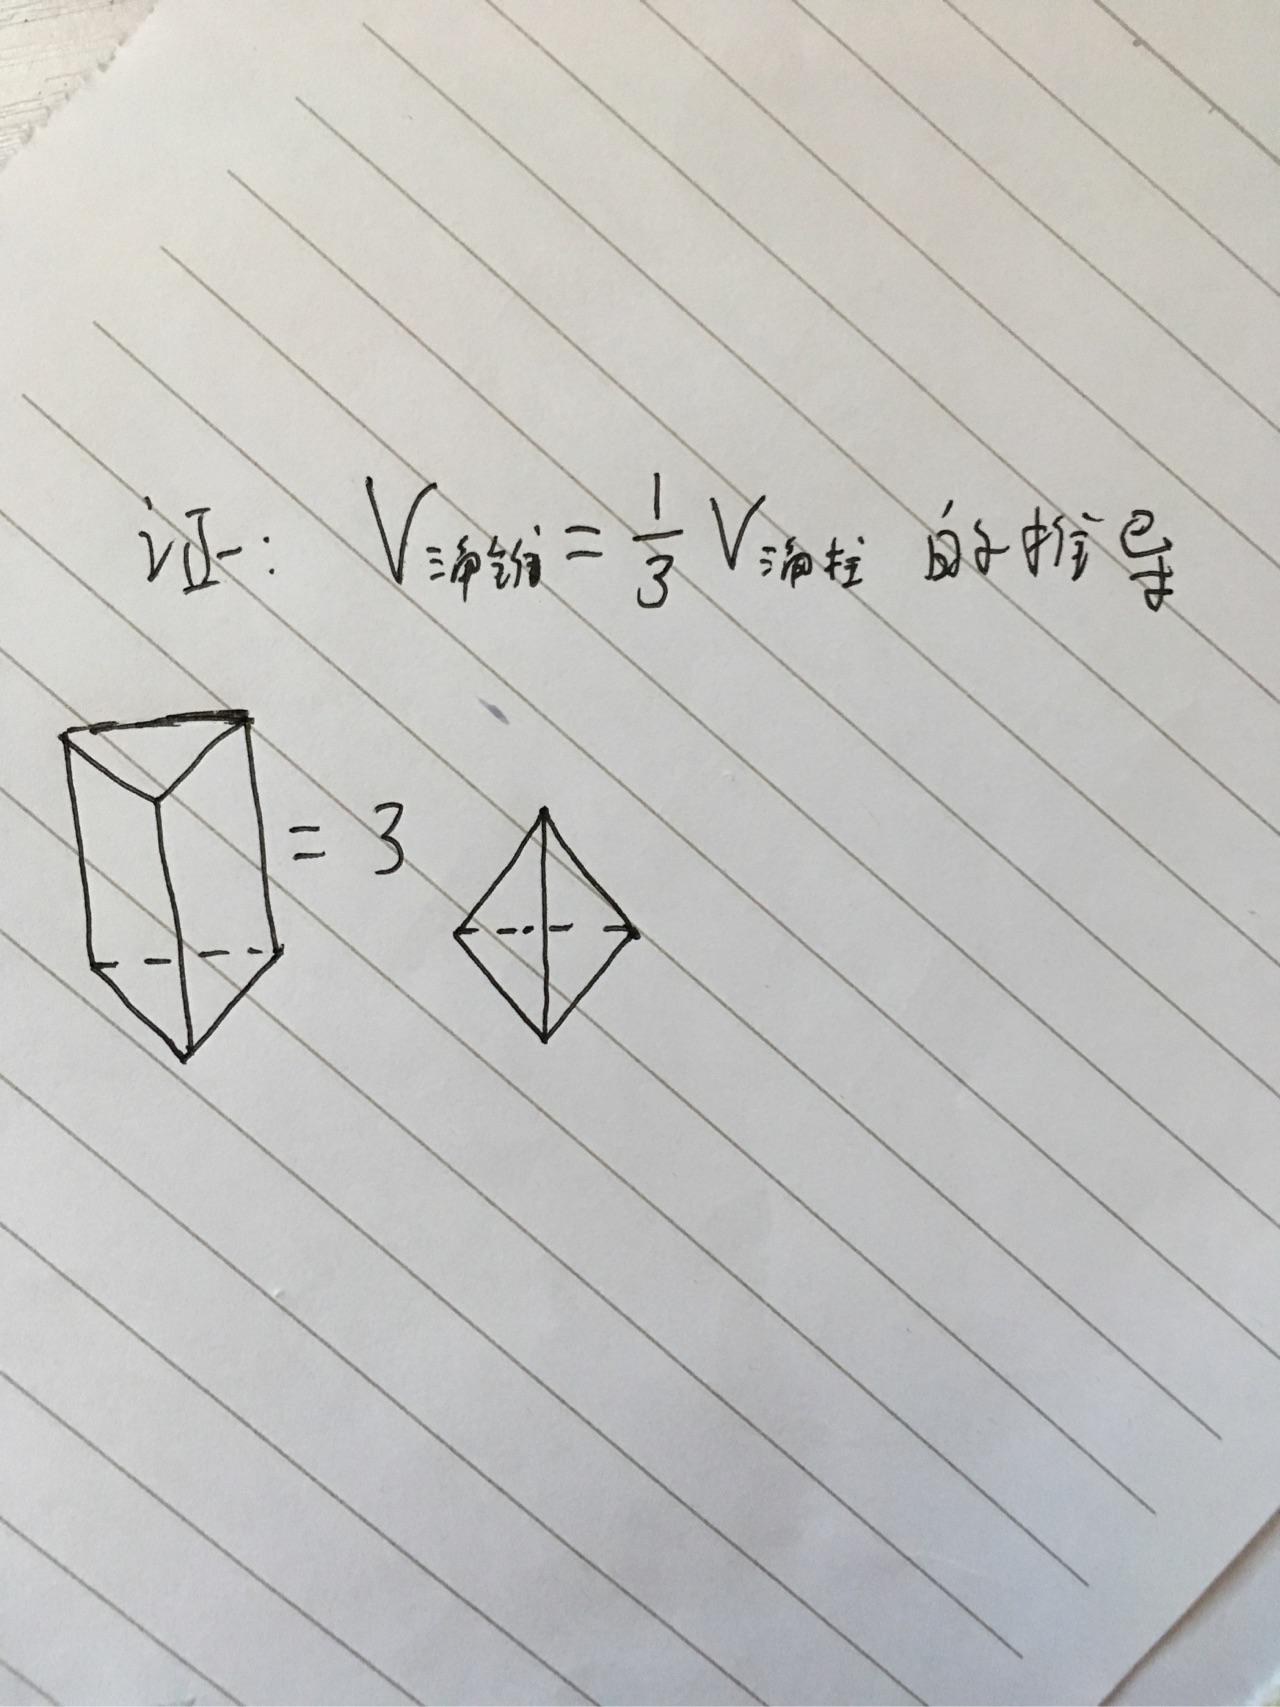 证: V三角锥 = 1/3 V三角柱 的推导
= 3